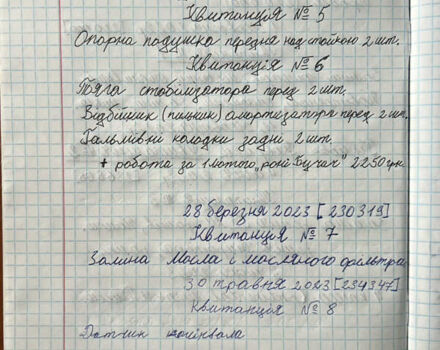 Квитанція № 5
Опорна подушка передня над стойкою 2 шт.
Квитанція № 6
Тяга стабілізатора перед 2 шт.
Відбійник (пильник) амортизатора перед 2 шт.
Гальмівні колодки задні 2 шт.
+ робота за 1 лютого „ 2250 грн.
28 березня 2023 [230319]
Квитанція № 7
Заміна Масла і масляного фільтра
30 травня 2023 [234347]
Квитанція № 8
Датчик колінвала